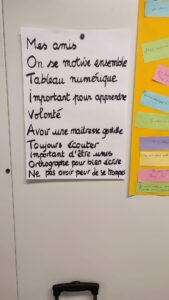 Mes amis
On se motive ensemble
Tableau numérique
Important pour apprendre
Volonté
Avoir une maîtresse gentille
Toujours écouter
Important d'être unis
Orthographe pour bien écrire
Ne pas avoir peur de se tromper